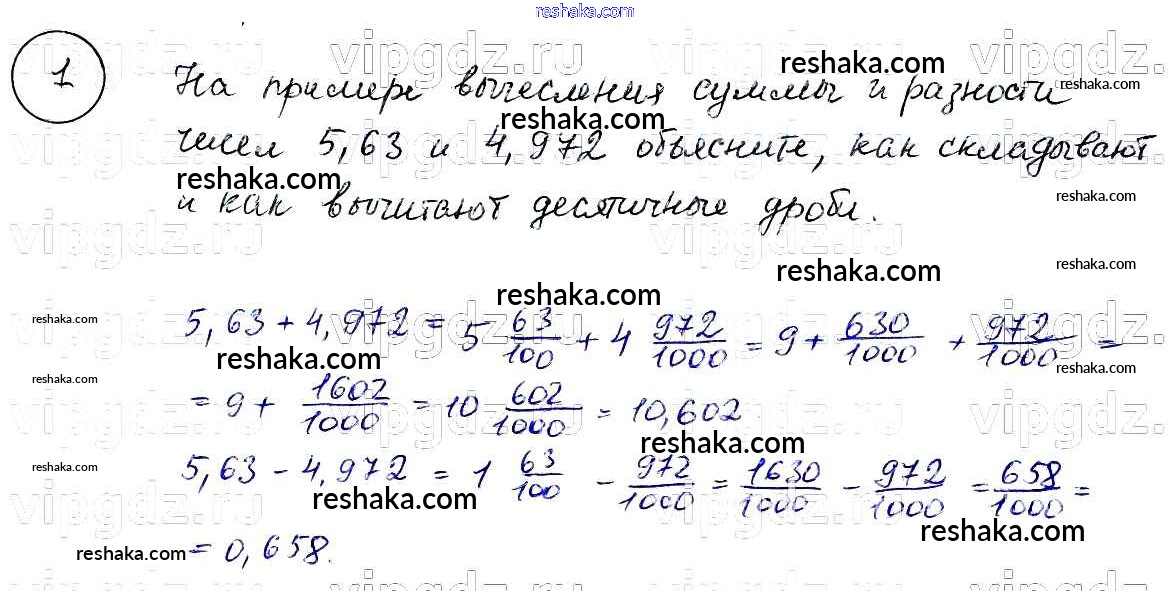 reshaka.com
1
На примере вычесления суммы и разности
чисел 5,63 и 4,972 объясните, как складывают
и как вычитают десятичные дроби.
5,63 + 4,972 = 5 63/100 + 4 972/1000 = 9 + 630/1000 + 972/1000 =
= 9 + 1602/1000 = 10 602/1000 = 10,602
5,63 - 4,972 = 1 63/100 - 972/1000 = 1630/1000 - 972/1000 = 658/1000 =
= 0,658.